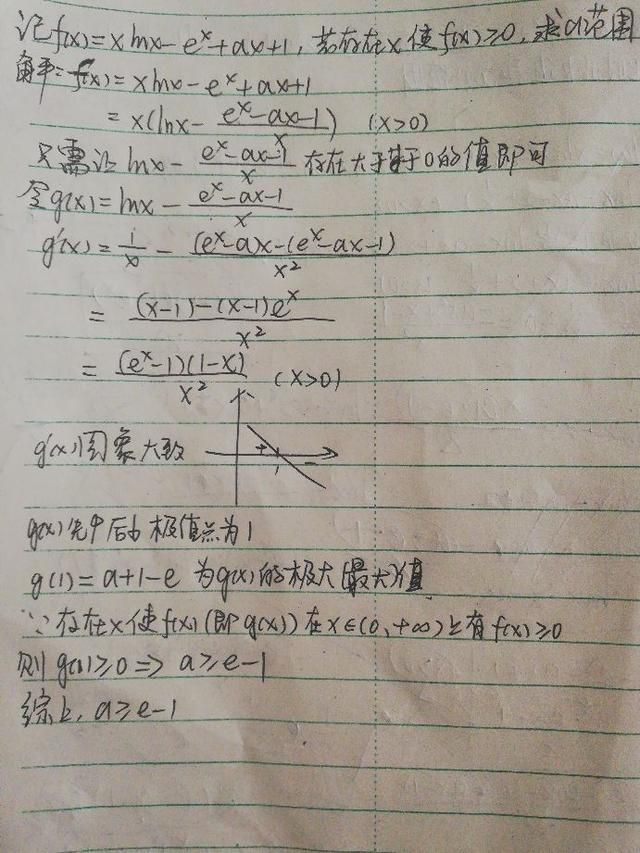 记f(x)=xlnx-e^x+ax+1,若存在x使f(x)≥0,求a范围
解:f(x)=xlnx-e^x+ax+1
=x(lnx-\frac{e^x-ax-1}{x}) (x>0)
只需让lnx-\frac{e^x-ax-1}{x}存在大于等于0的值即可
令g(x)=lnx-\frac{e^x-ax-1}{x}
g'(x)=\frac{1}{x}-\frac{(e^x-a)x-(e^x-ax-1)}{x^2}
=\frac{(x-1)-(x-1)e^x}{x^2}
=\frac{(e^x-1)(1-x)}{x^2} (x>0)
g'(x)图象大致
+
1
-
g(x)先↑后↓极值点为1
g(1)=a+1-e为g(x)的极大(最大)值
∵存在x使f(x)(即g(x))在x∈(0,+∞)上有f(x)≥0
则g(1)≥0=>a≥e-1
综上,a≥e-1